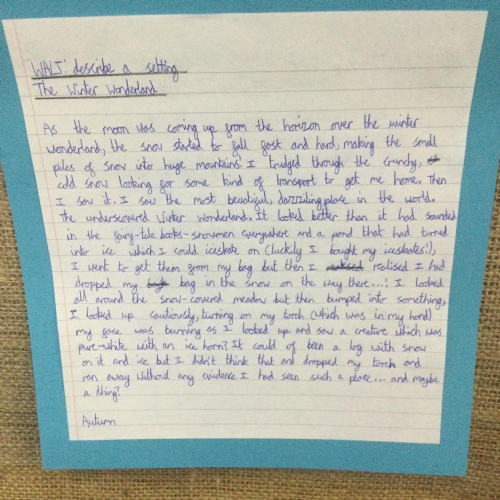 'WALT' describe a setting
The Winter Wonderland
As the moon was coming up from the horizon over the winter
wonderland, the snow started to fall fast and hard, making the small
piles of snow into huge mountains! I trudged through the crunchy,
cold snow looking for some kind of transport to get me home. Then
I saw it. I saw the most beautiful, dazzling place in the world.
The underscovered Winter Wonderland. It looked better than it had sounded
in the fairy-tale books- snowmen everywhere and a pond that had turned
into ice which I could iceskate on (luckily I bought my iceskates!),
I went to get them from my bag but then I realised I had
dropped my bag in the snow on the way there...! I looked
all around the snow-covered meadow but then bumped into something,
I looked up cautiously, turning on my torch (which was in my hand)
my face was burning as I looked up and saw a creature which was
pure-white with an ice horn? It could of been a log with snow
on it and ice but I didn't think that and dropped my torch and
ran away without any evidence I had seen such a place... and maybe
a thing?
Autumn